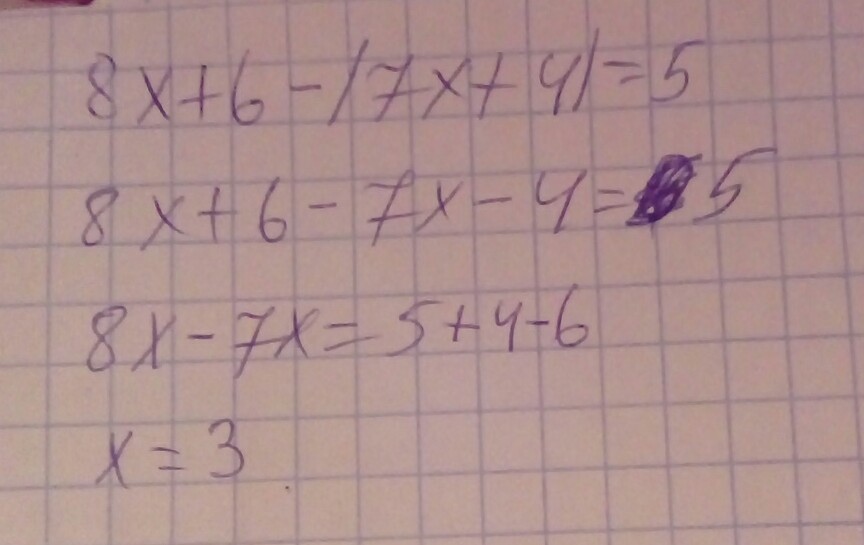 8x+6-|7x+4|=5
8x+6-7x-4=5
8x-7x=5+4-6
x=3